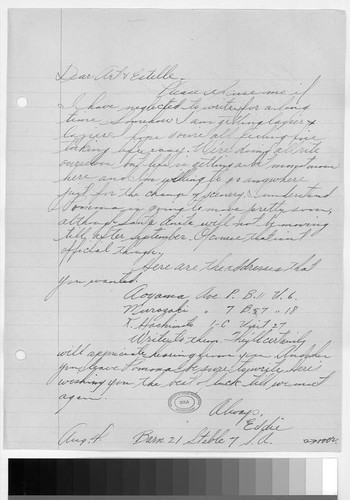 Dear Art & Estelle,
Please excuse me if
I have neglected to write for a long
time. Somehow I am getting lazier &
lazier. Hope you're all feeling fine
taking life easy. We're doing all rite
ourselves but life is getting a bit monotonous
here and I'm willing to go anywhere
just for the change of scenery. I understand
Pomona is going to move pretty soon,
although Santa Anita will not be moving
till after September. Of course that isn't
official though.
Here are the addresses that
you wanted.
Aoyama Ave P. B.11 U.6.
Murozaki " 7 B57 " 18
T. Hashimoto 5-C Unit 27
Write to them. They'll certainly
will appreciate hearing from you. And when
you leave Pomona be sure to write. Here
wishing you the best of luck till we meet
again.
Always,
Eddie
Aug. 4 Barn 21 Stable 7 S.A.